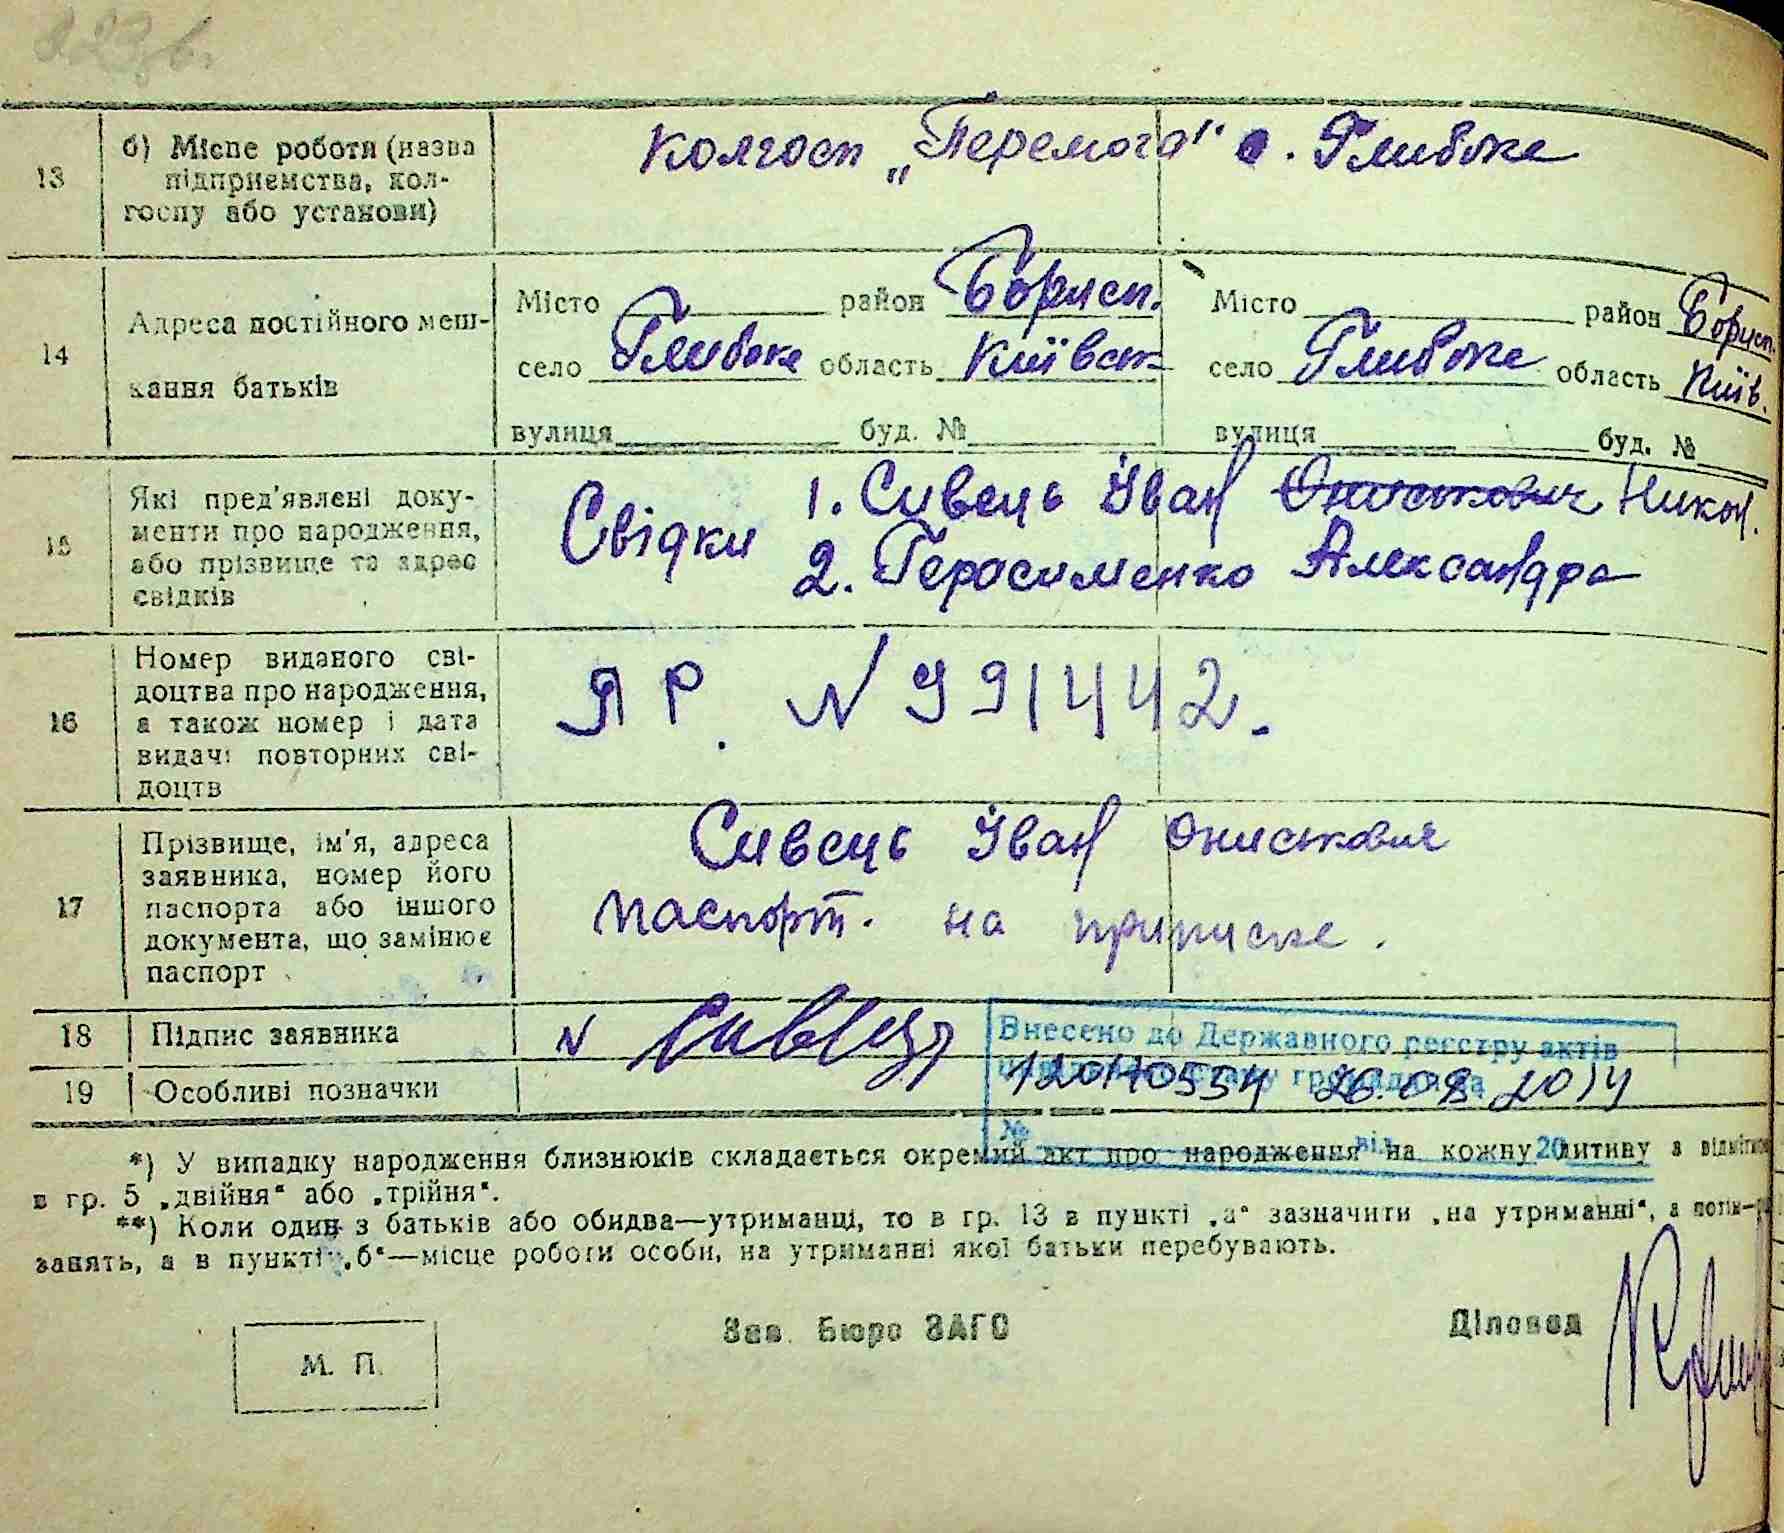 13 б) Місце роботи (назва підприємства, кол-
госпу або установи)
Колгосп „Перемога" с. Глибоке
14 Адреса постійного меш-
кання батьків
Місто район Борисп. Місто район Борисп.
село Глибоке область Київськ село Глибоке область Київ.
вулиця буд. № вулиця буд. №
15 Які пред'явлені доку-
менти про народження,
або прізвище та адрес
свідків
Свідки 1. Сивець Іван Ониськович Никон.
2. Герасименко Александра
16 Номер виданого сві-
доцтва про народження,
а також номер і дата
видачі повторних сві-
доцтв
ЯР. N 991442.
17 Прізвище, ім'я, адреса
заявника, номер його
паспорта або іншого
документа, що замінює
паспорт
Сивець Іван Ониськович
паспорт. на приписке.
18 Підпис заявника
Сивець
19 Особливі позначки
Внесено до Державного реєстру актів
цивільного стану громадян за
26.08.2014
№ від 20
*) У випадку народження близнюків складається окремий акт про народження на кожну дитину з відміткою
в гр. 5 „двійня" або „трійня".
**) Коли один з батьків або обидва—утриманці, то в гр. 13 в пункті „а" зазначити „на утриманні", а потім—
занять, а в пункті „б"—місце роботи особи, на утриманні якої батьки перебувають.
М. П.
Зав. Бюро ЗАГС
Діловод